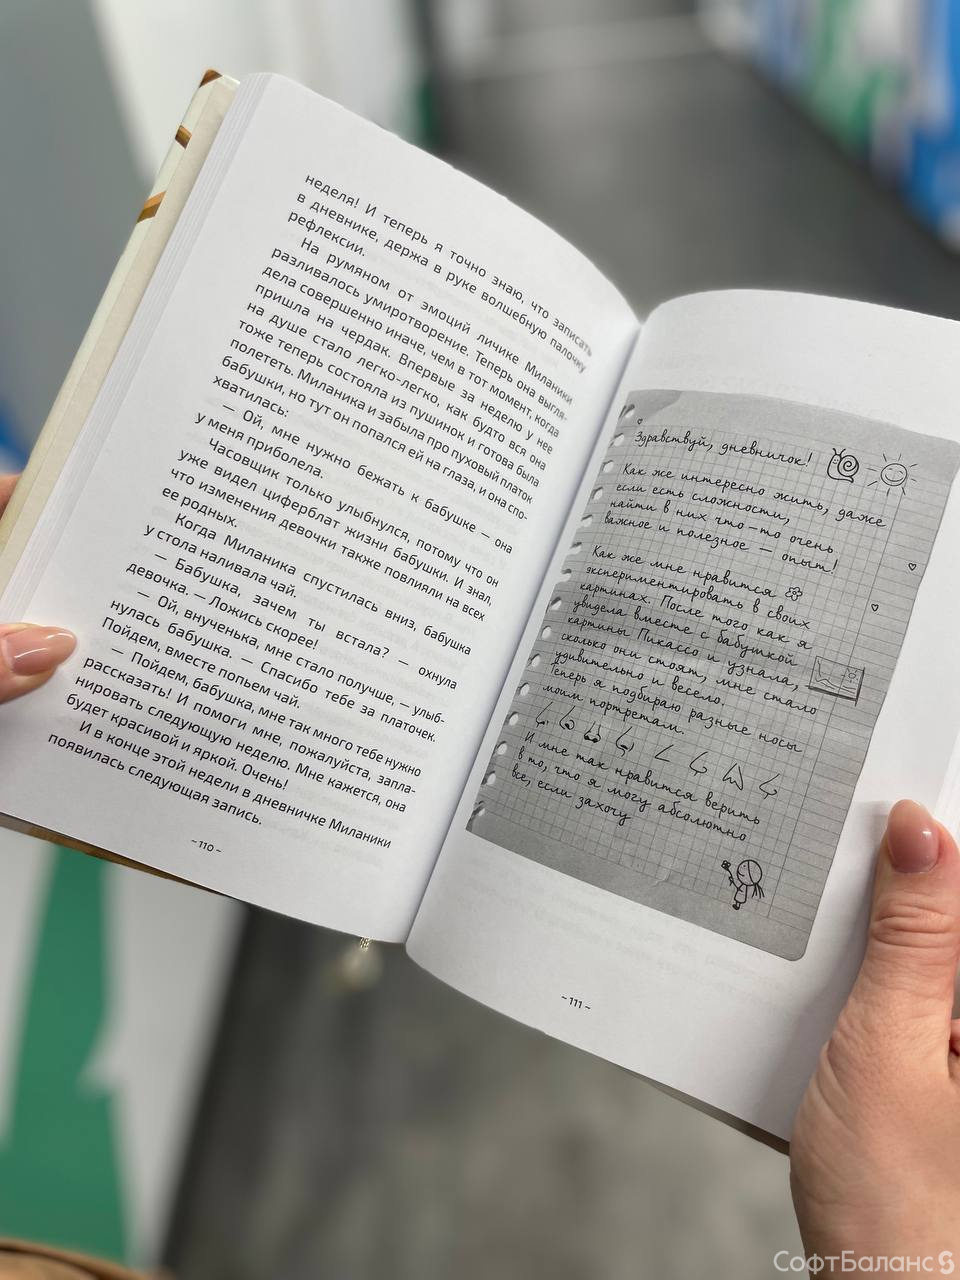 неделя! И теперь я точно знаю, что записать
в дневнике, держа в руке волшебную палочку
рефлексии.
На румяном от эмоций личике Миланики
разливалось умиротворение. Теперь она выгля-
дела совершенно иначе, чем в тот момент, когда
пришла на чердак. Впервые за неделю у нее
на душе стало легко-легко, как будто вся она
тоже теперь состояла из пушинок и готова была
полететь. Миланика и забыла про пуховый платок
бабушки, но тут он попался ей на глаза, и она спо-
хватилась:
— Ой, мне нужно бежать к бабушке — она
у меня приболела.
Часовщик только улыбнулся, потому что он
уже видел циферблат жизни бабушки. И знал,
что изменения девочки также повлияли на всех
ее родных.
Когда Миланика спустилась вниз, бабушка
у стола наливала чай.
— Бабушка, зачем ты встала? — охнула
девочка. — Ложись скорее!
— Ой, внученька, мне стало получше, — улыб-
нулась бабушка. — Спасибо тебе за платочек.
Пойдем, вместе попьем чай.
— Пойдем, бабушка, мне так много тебе нужно
рассказать! И помоги мне, пожалуйста, запла-
нировать следующую неделю. Мне кажется, она
будет красивой и яркой. Очень!
И в конце этой недели в дневничке Миланики
появилась следующая запись.
~ 110 ~
Здравствуй, дневничок!
Как же интересно жить, даже
если есть сложности,
найти в них что-то очень
важное и полезное — опыт!
Как же мне нравится
экспериментировать в своих
картинах. После того как я
увидела вместе с бабушкой
картины Пикассо и узнала,
сколько они стоят, мне стало
удивительно и весело.
Теперь я подбираю разные носы
моим портретам.
И мне так нравится верить
в то, что я могу абсолютно
все, если захочу
~ 111 ~
СофтБаланс